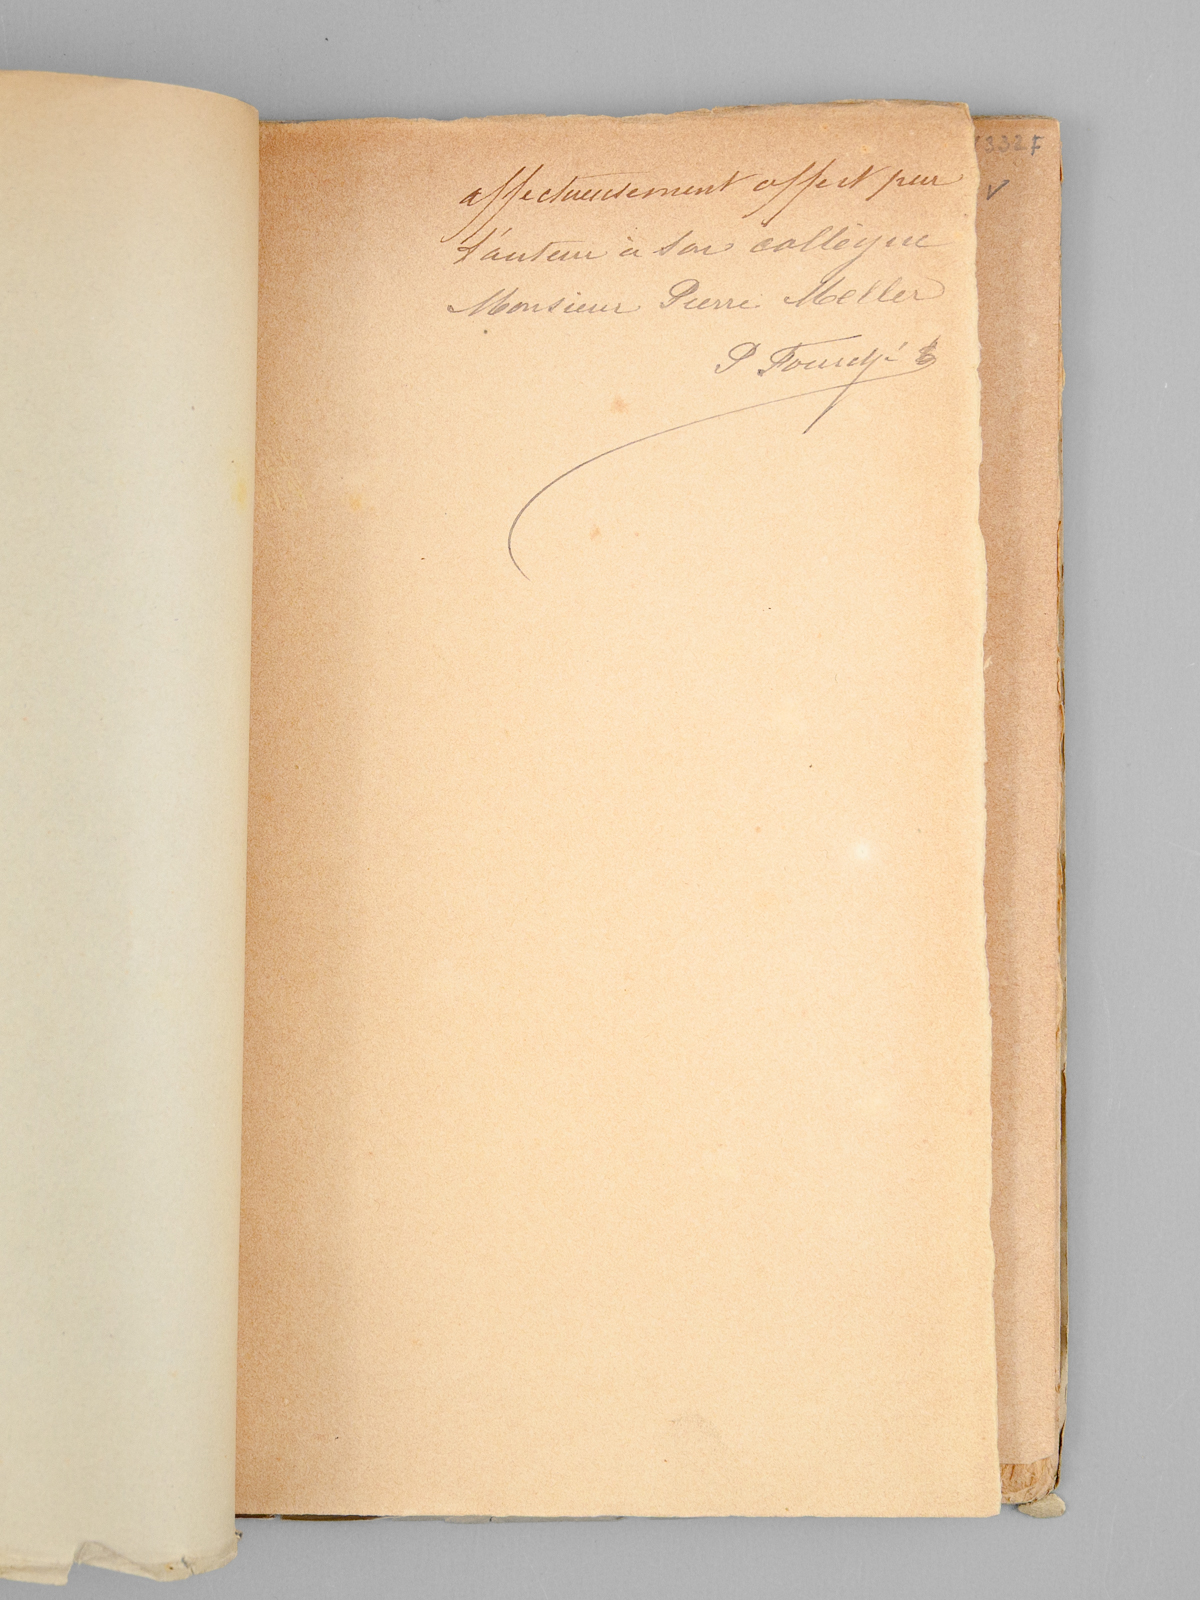 affectueusement offert par
l'auteur à son collègue
Monsieur Pierre Meller
P Fourché
332F